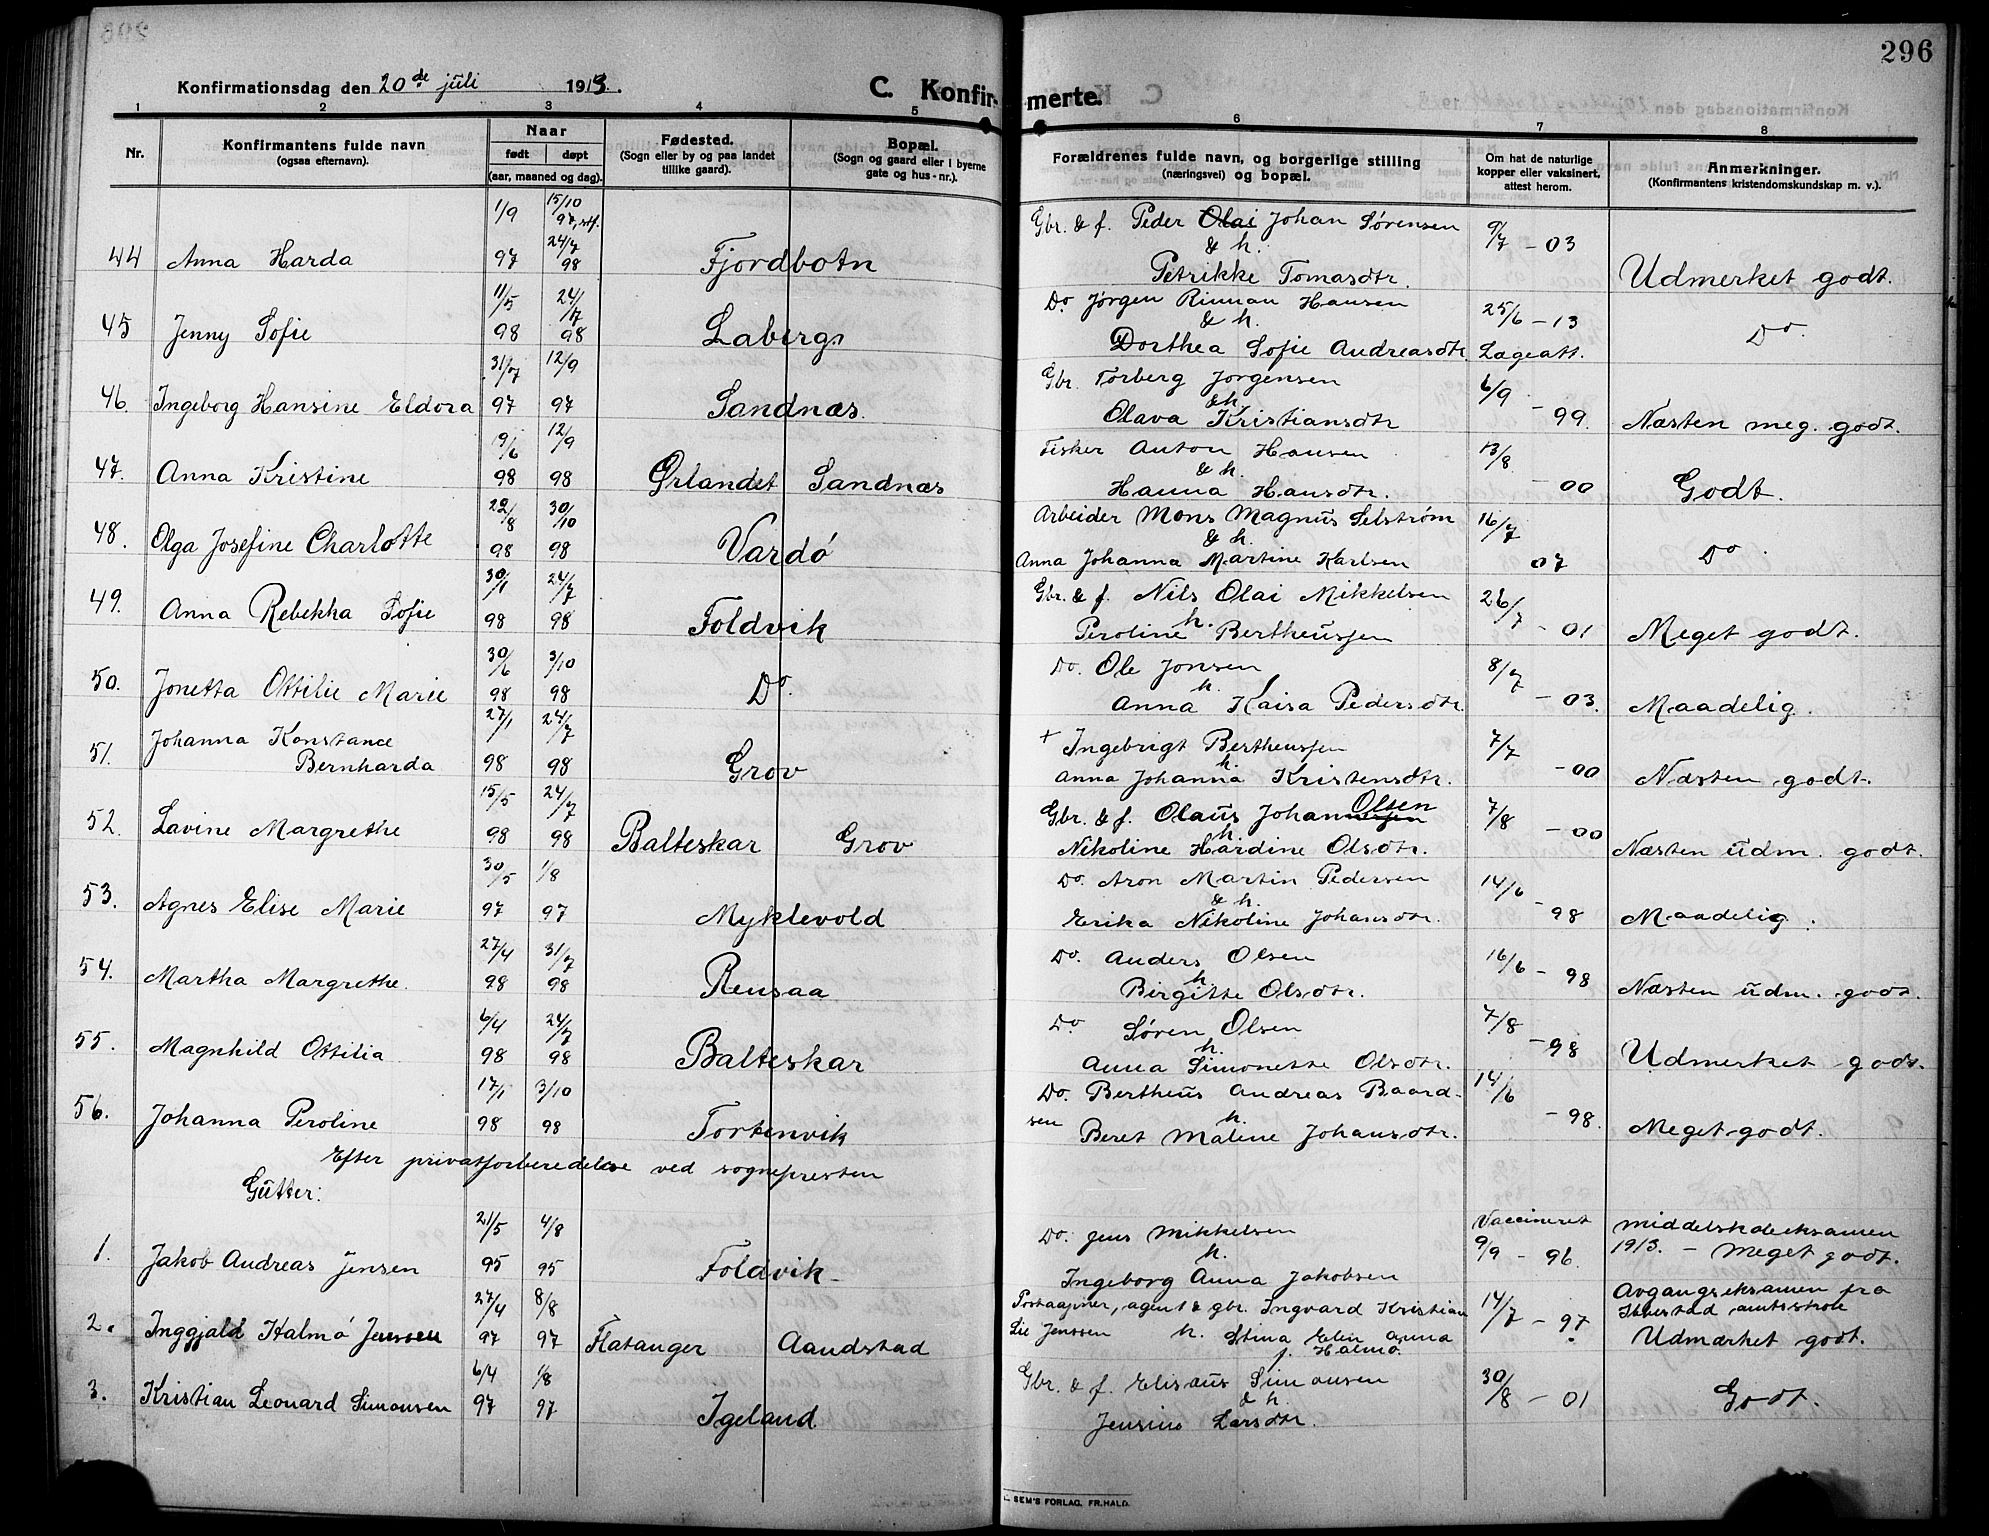 296
Konfirmationsdag den 20de juli 1913.
C. Konfirmerte.
1 2 3 4 5 6 7 8
Nr.
Konfirmantens fulde navn
(ogsaa efternavn).
Naar
født døpt
(aar, maaned og dag).
Fødested.
(Sogn eller by og paa landet
tillike gaard).
Bopæl.
(Sogn og gaard eller i byerne
gate og hus-nr.).
Forældrenes fulde navn, og borgerlige stilling
(næringsvei) og bopæl.
Om hat de naturlige
kopper eller vaksinert,
attest herom.
Anmerkninger.
(Konfirmantens kristendomskundskap m. v.).
44 Anna Harda 1/9 97 15/10 97, stf. 24/7 98 Fjordbotn Gbr. & f. Peder Olai Johan Sørensen & h. Petrikke Tomasdtr. 9/7 - 03 Udmerket godt.
45 Jenny Sofie 11/5 98 24/7 98 Laberg Do. Jørgen Rinnan Hansen & h. Dorthea Sofie Andreasdtr. 25/6 - 13 Lægeatt. Do.
46. Ingeborg Hansine Eldora 31/7 97 12/9 97 Sandnæs. Gbr. Torberg Jørgensen & h. Olava Kristiansdtr 6/9 - 99. Næsten meg. godt.
47. Anna Kristine 9/6 98 12/9 98 Ørlandet Sandnæs Fisker Anton Hansen & h. Hanna Hansdtr. 13/8 - 00 Godt.
48. Olga Josefine Charlotte 22/8 98 30/10 98 Vardø Arbeider Mons Magnus Selstrøm & h. Anna Johanna Martine Karlsen 16/7 07 Do.
49. Anna Rebekka Sofie 30/1 98 24/7 98 Foldvik Gbr. & f. Nils Olai Mikkelsen h. Peroline Bertheussen 26/7 - 01 Meget godt.
50. Jonetta Ottilie Marie 30/6 98 3/10 98 Do. Do. Ole Jonsen h. Anna Kaisa Pedersdtr. 8/7 - 03. Maadelig.
51. Johanna Konstance Bernharda 27/1 98 24/7 98 Grov + Ingebrigt Bertheussen h. Anna Johanna Kristensdtr. 7/7 - 00 Næsten godt.
52. Lavine Margrethe 15/5 98 24/7 98 Balteskar Grov Gbr. & f. Olaus Johannessen Olsen h. Nikoline Hardine Olsdtr. 7/8 - 00 Næsten udm. godt.
53. Agnes Elise Marie 30/5 97 1/8 97 Myklevold Do. Aron Martin Pedersen & h. Erika Nikoline Johansdtr. 14/6 - 98 Maadelig.
54. Martha Margrethe. 27/4 98 31/7 98 Rensaa Do. Anders Olsen h. Birgitte Olsdtr. 16/6 - 98 Næsten udm. godt.
55. Magnhild Ottilia 6/4 98 24/7 98 Balteskar Do Søren Olsen h. Anna Simonette Olsdtr. 7/8 - 98 Udmerket godt.
56. Johanna Peroline 17/1 98 3/10 98 Tortenvik Do. Bertheus Andreas Baardsen h. Beret Malene Johansdtr. 14/6 - 98. Meget godt.
Efter privatforberedelse ved sognepresten
Gutter:
1. Jakob Andreas Jensen 21/5 95 4/8 95 Foldvik Do. Jens Mikkelsen h. Ingeborg Anna Jakobsen Vaccineret 9/9 - 96. Middelskoleeksamen 1913. - Meget godt.
2. Inggjald Kalmø Jenssen 27/4 97 8/8 97 Flatanger Aandstad Postaapner, agent & gbr. Ingvard Kristian Lie Jenssen h. Stina Elen Anna f. Halmø. 14/7 - 97. Avgangseksamen fra Ibestad amtsskole Udmærket godt.
3. Kristian Leonard Simonsen 6/4 97 1/8 97 Igeland Gbr. & f. Elisæus Simonsen & h. Jensine Larsdtr. 30/8 - 01 Godt.
SEM'S FORLAG, FR.HALD.